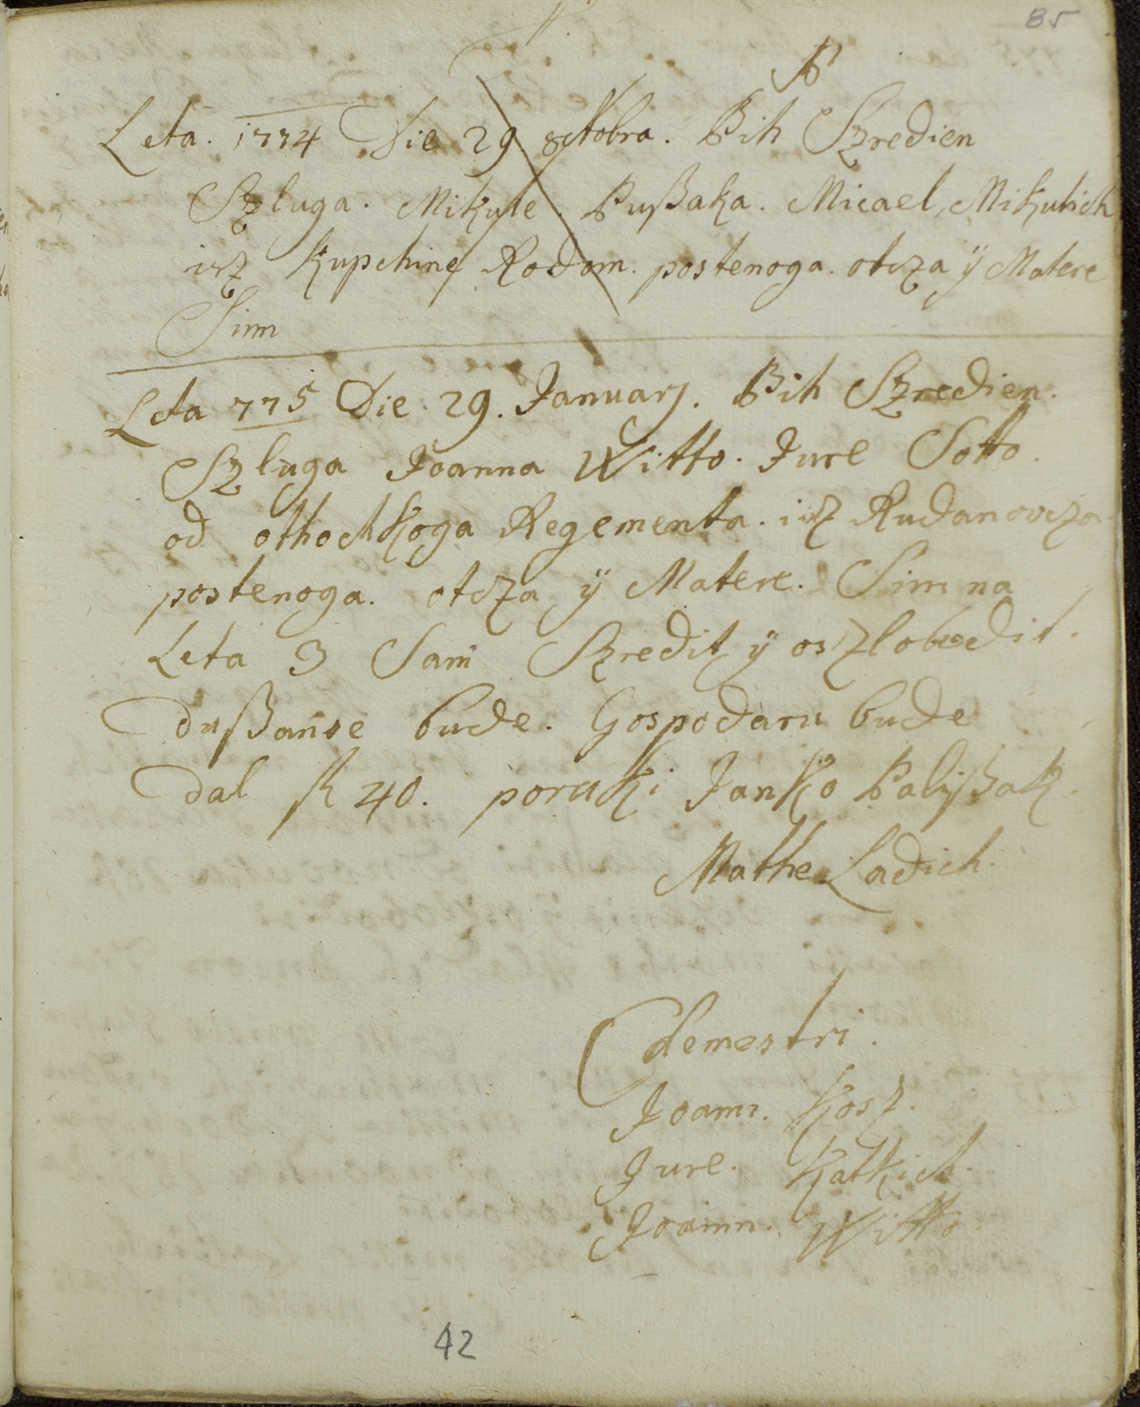 85
Leta. 1774 Die 29 8ctobra. Bih Szredien
Szluga. Mikule. Pußaka. Micael Mikulich
isz Kupchine Rodom. postenoga. otcza ÿ Matere
Sinn
Leta 775 Die. 29. Januarj. Bih Szredien.
Szluga Joanna Witto. Jure Sotto.
od othochkoga Regementa. isz Rudanovcza
postenoga. otcza ÿ Matere. Sim na
Leta 3 Sam Szredit ÿ oszlobodit.
dußanse bude. Gospodaru bude
dal R 40. poruki Janko Palißak.
Mathe Ladich.
Cdemestri.
Joann. Kosz.
Jure. Katkich.
Joann. Witto
42